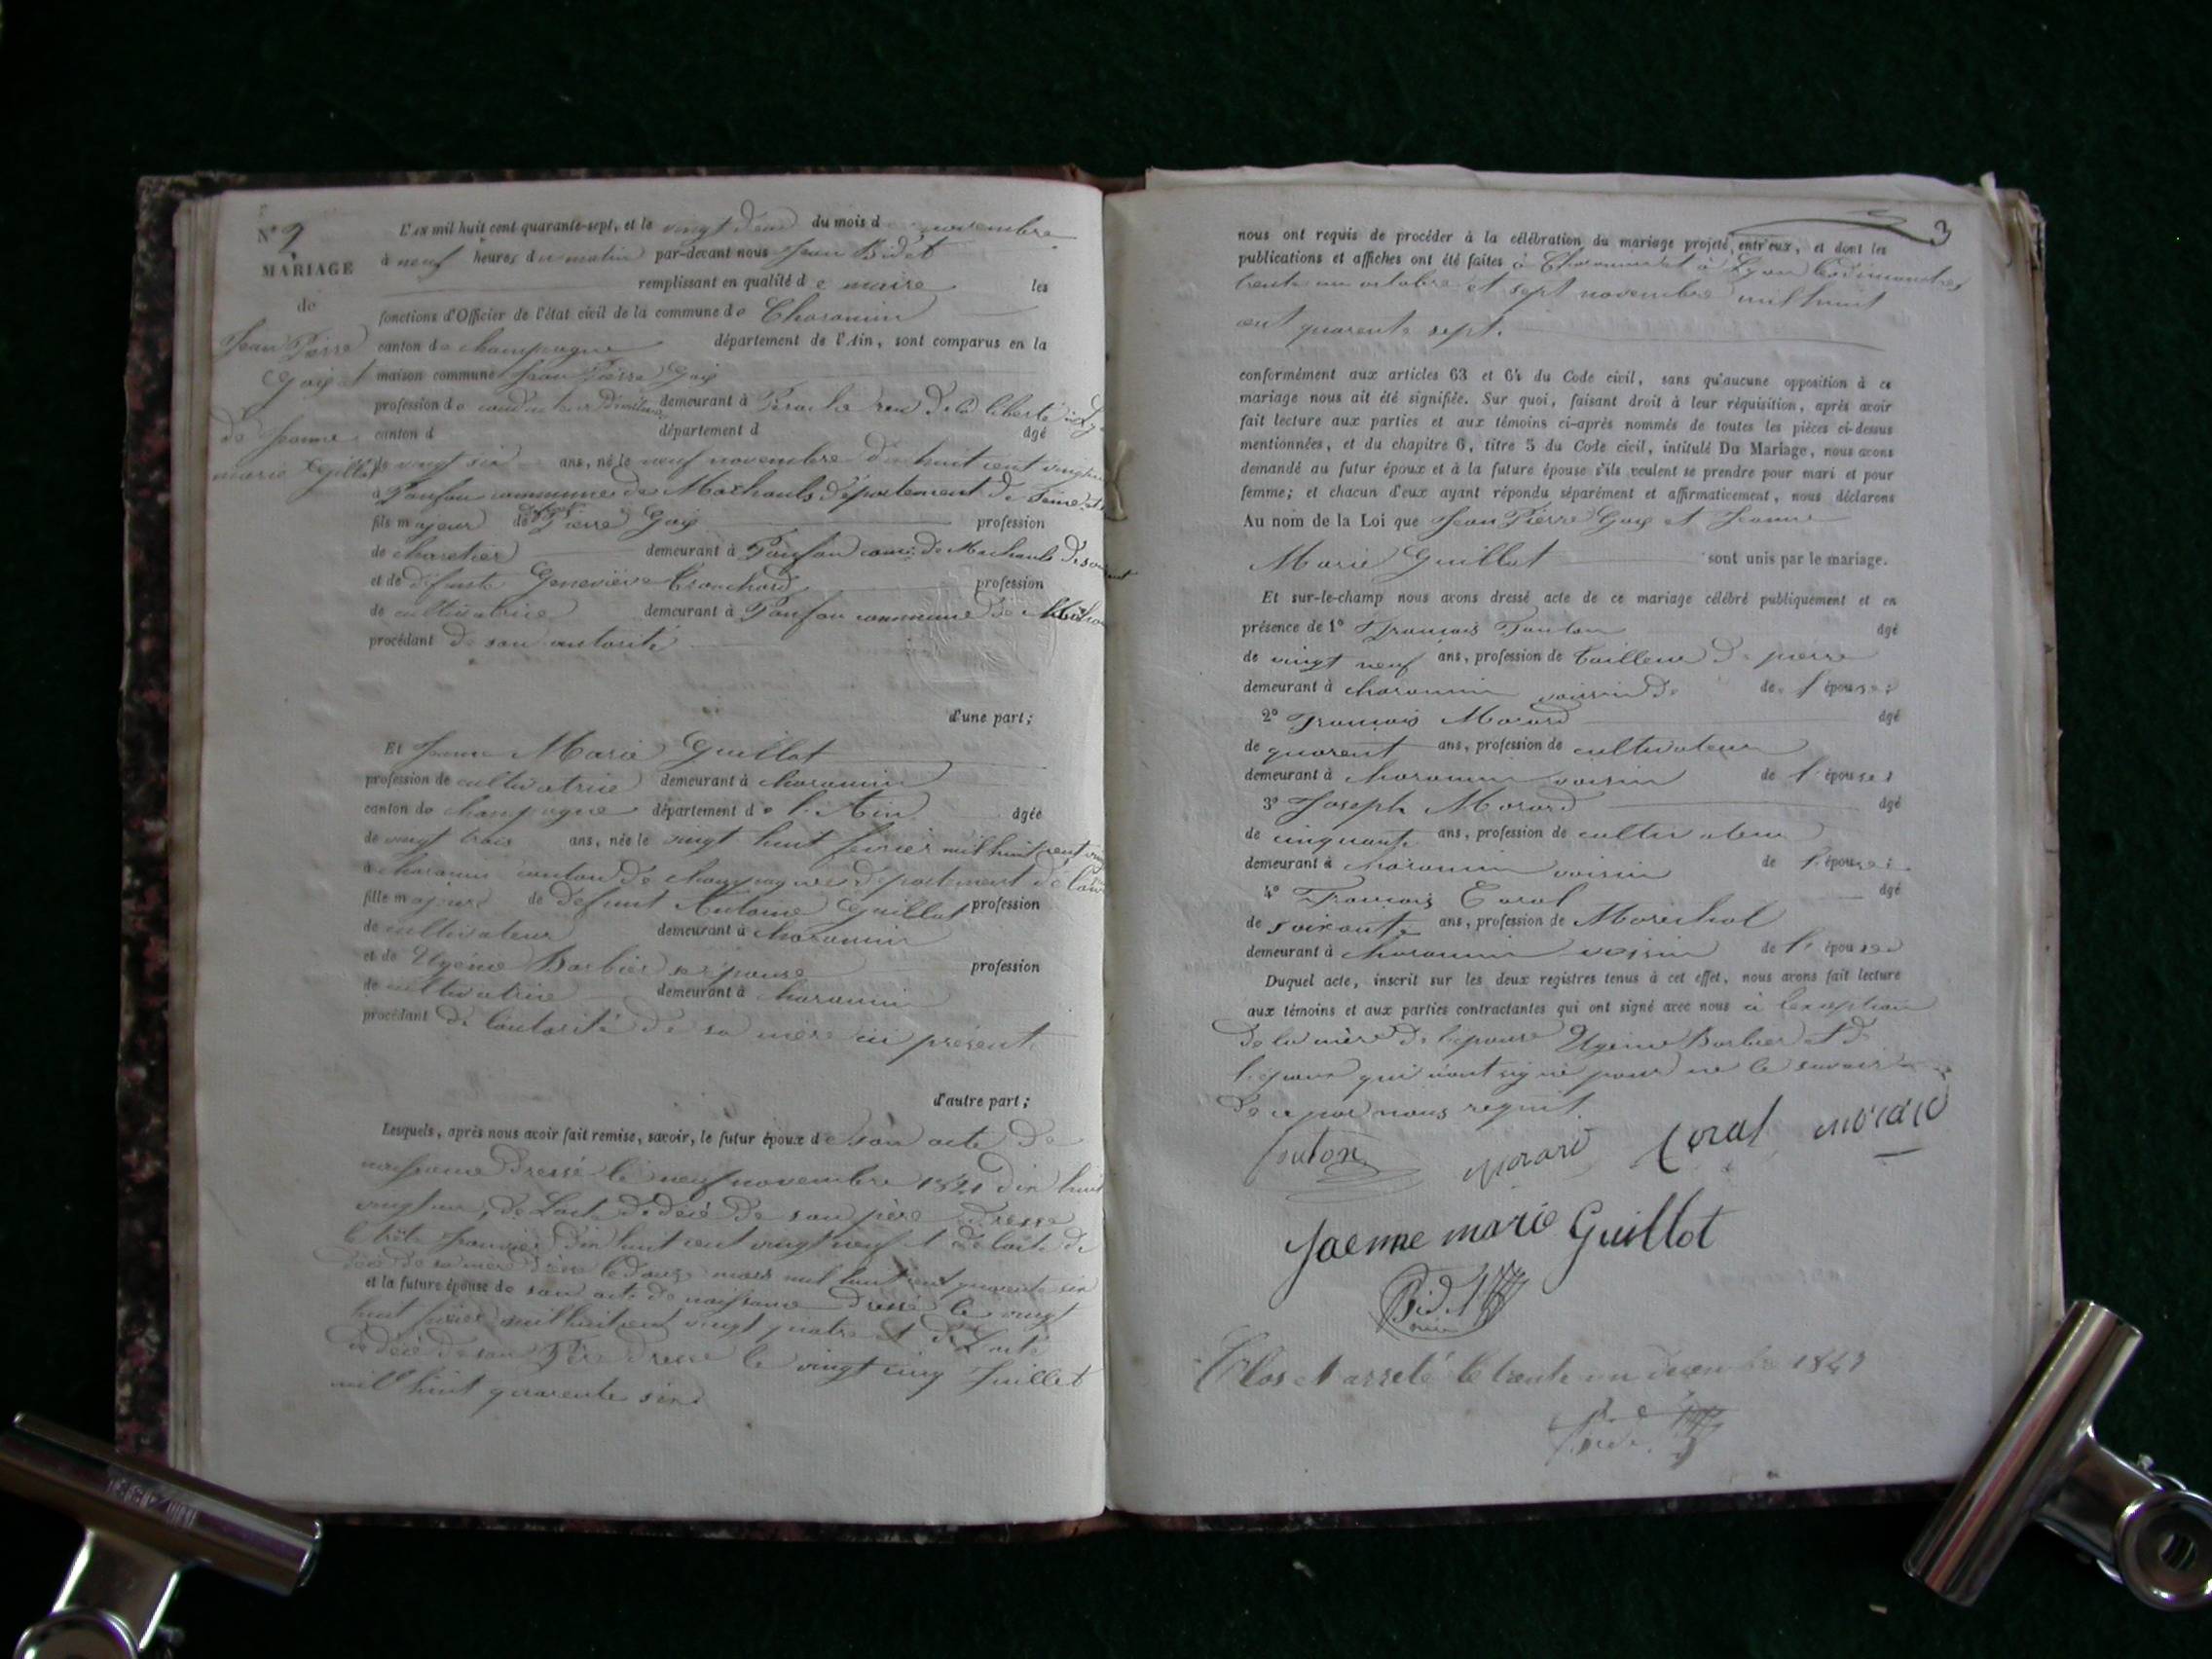 N° 2
MARIAGE
de
Jean Pierre
Gaix et
de Jeanne
marie Guillot
L'AN mil huit cent quarante-sept, et le vingt deux du mois de novembre
à neuf heures du matin par-devant nous Jean Bidet
remplissant en qualité de maire les
fonctions d'Officier de l'état civil de la commune de Charancin
canton de champagne département de l'Ain, sont comparus en la
maison commune Jean Pierre Gaix
profession de conducteur demeurant à Perache rue de la liberté à
canton d département d âgé
de vingt six ans, né le neuf novembre dix huit cent vingt
à Panfou commune de Machault département de Seine et
fils majeur de Pierre Gaix profession
de charetier demeurant à Panfou com. de Machault
et de défunte Geneviève Tranchard profession
de cultivatrice demeurant à Panfou commune de
procédant de son autorité
d'une part;
Et Jeanne Marie Guillot
profession de cultivatrice demeurant à charancin
canton de champagne département de l'Ain âgée
de vingt trois ans, née le vingt huit fevrier mil huit cent
à charancin canton de champagne département de l'ain
fille majeure de défunt Antoine Guillot profession
de cultivateur demeurant à charancin
et de Ugénie Barbier son épouse profession
de cultivatrice demeurant à charancin
procédant de l'autorité de sa mère ici présente
d'autre part;
Lesquels, après nous avoir fait remise, savoir, le futur époux de son acte de
naissance dressé le neuf novembre 1821 dix huit
vingt un, de L'acte de décé de son père dressé
le Janvier dix huit cent vingt neuf et de l'acte de
décé de sa mère dressé le douze mars mil huit cent quarante six
et la future épouse de son acte de naissance dressé le vingt
huit fevrier mil huit cent vingt quatre et de L'acte
de décé de son Père dressé le vingt cinq Juillet
mil huit quarante six
3
nous ont requis de procéder à la célébration du mariage projeté entr'eux, et dont les
publications et affiches ont été faites à Charancin et à Lyon les dimanches
trente un octobre et sept novembre mil huit
cent quarente sept.
conformément aux articles 63 et 64 du Code civil, sans qu'aucune opposition à ce
mariage nous ait été signifiée. Sur quoi, faisant droit à leur réquisition, après avoir
fait lecture aux parties et aux témoins ci-après nommés de toutes les pièces ci-dessus
mentionnées, et du chapitre 6, titre 5 du Code civil, intitulé Du Mariage, nous avons
demandé au futur époux et à la future épouse s'ils veulent se prendre pour mari et pour
femme; et chacun d'eux ayant répondu séparément et affirmativement, nous déclarons
Au nom de la Loi que Jean Pierre Gaix et Jeanne
Marie Guillot sont unis par le mariage.
Et sur-le-champ nous avons dressé acte de ce mariage célébré publiquement et en
présence de 1° François Touton âgé
de vingt neuf ans, profession de tailleur de pierre
demeurant à charancin voisin de de l'épouse;
2° François Morard âgé
de quarent ans, profession de cultivateur
demeurant à charancin voisin de l'épouse;
3° Joseph Morard âgé
de cinquante ans, profession de cultivateur
demeurant à charancin voisin de l'épouse;
4° François Coral âgé
de soixante ans, profession de Marechal
demeurant à charancin voisin de l'épouse
Duquel acte, inscrit sur les deux registres tenus à cet effet, nous avons fait lecture
aux témoins et aux parties contractantes qui ont signé avec nous à l'exception
de la mère de l'épouse Ugénie Barbier et de
l'époux qui n'ont signé pour ne le savoir
de ce par nous requit.
touton morard Coral morard
Jaenne marie Guillot
Bidet
maire
Clos et arreté le trente un decembre 1847
Bidet